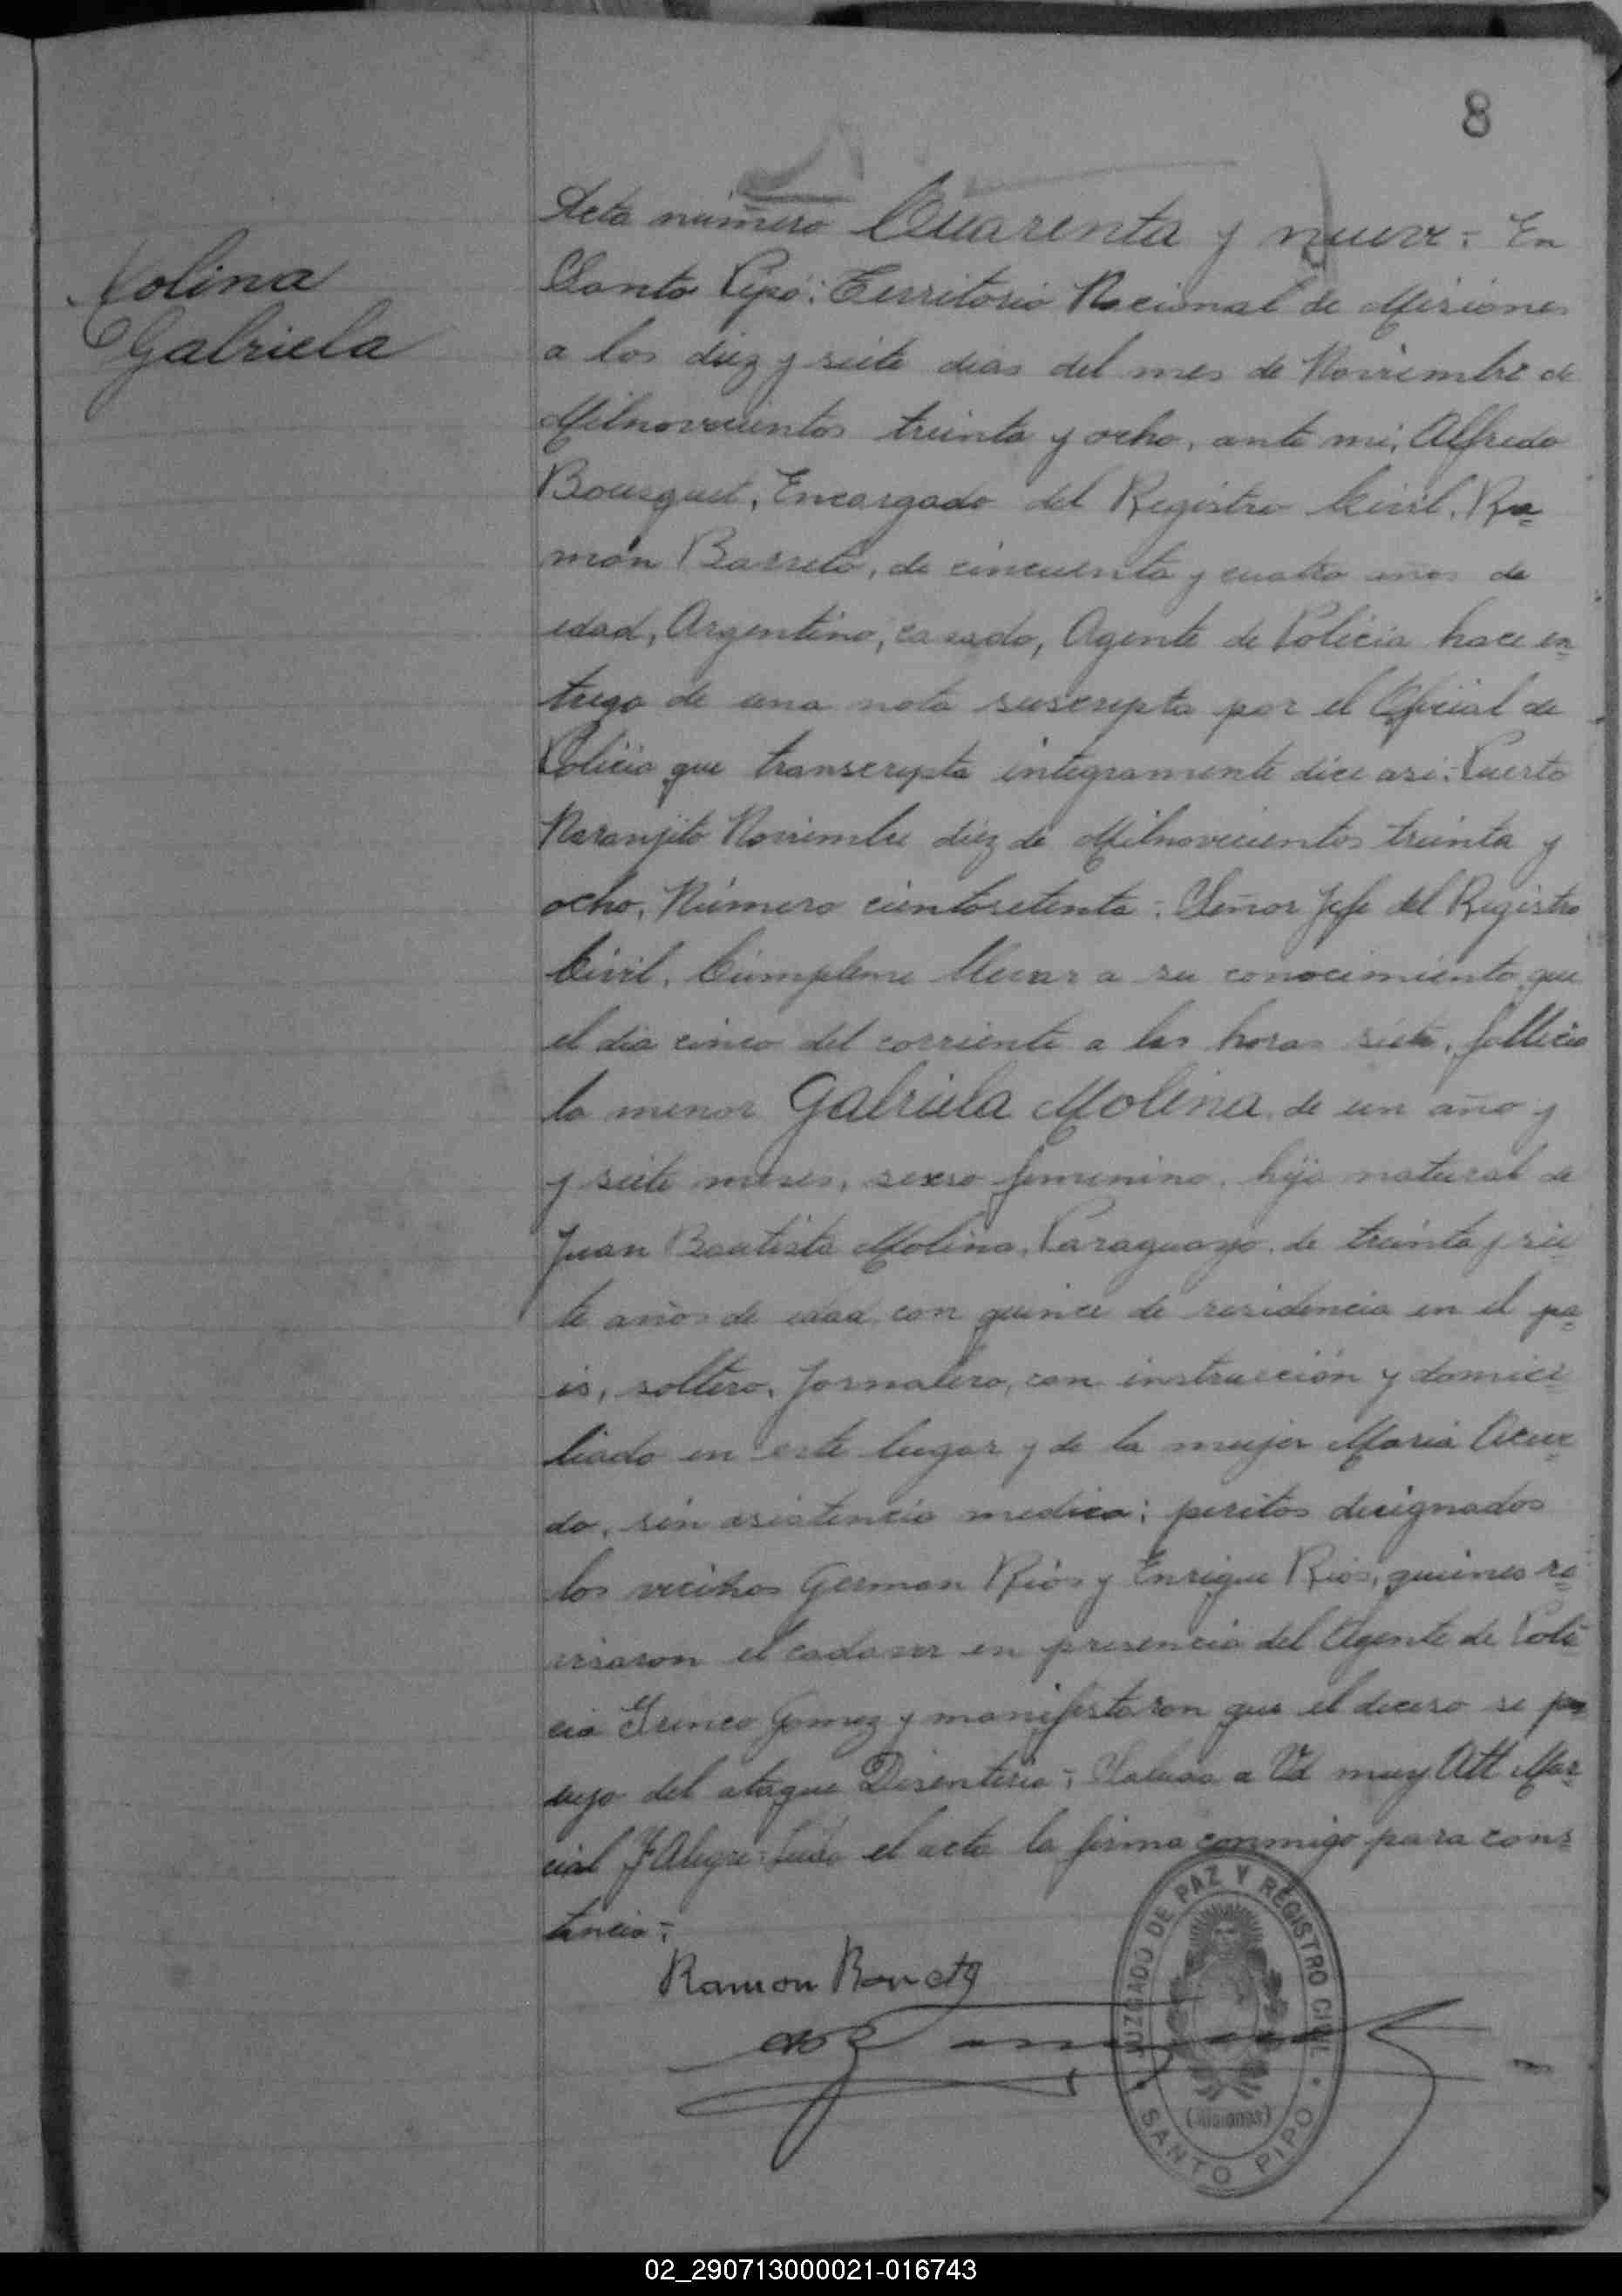 8
Molina
Gabriela
Acta número Cuarenta y nueve = En
Santo Pipó: Territorio Nacional de Misiones
a los diez y siete dias del mes de Noviembre de
Milnovecientos treinta y ocho, ante mi, Alfredo
Bousquet, Encargado del Registro Civil, Ra=
món Barreto, de cincuenta y cuatro años de
edad, Argentino, casado, Agente de Policia hace en=
trega de una nota suscripta por el Oficial de
Policia que transcripta integramente dice asi: Puerto
Naranjito Noviembre diez de Milnovecientos treinta y
ocho, Número cientosetenta = Señor Jefe del Registro
Civil. Cúmpleme llevar a su conocimiento que
el dia cinco del corriente a las horas siete, fallecio
la menor Gabriela Molina, de un año y
y siete meses, sexso femenino, hija natural de
Juan Bautista Molina, Paraguayo, de treinta y sie=
te años de edad con quince de residencia en el pa=
is, soltero, Jornalero, con instrucción y domici=
liado en este lugar y de la mujer Maria
do, sin asistencia medica; peritos designados
los vecinos German Rios y Enrique Rios, quienes re=
visaron el cadaver en presencia del Agente de Poli=
cia Gomez y manifestaron que el deceso se pro=
dujo del ataque Disenteria = Saluda a Vd muy Att Mar=
cial F Alegre = Leida el acta la firma conmigo para cons=
tancia =
Ramon Barreto
JUZGADO DE PAZ Y REGISTRO CIVIL
(Misiones)
SANTO PIPO
02_290713000021-016743